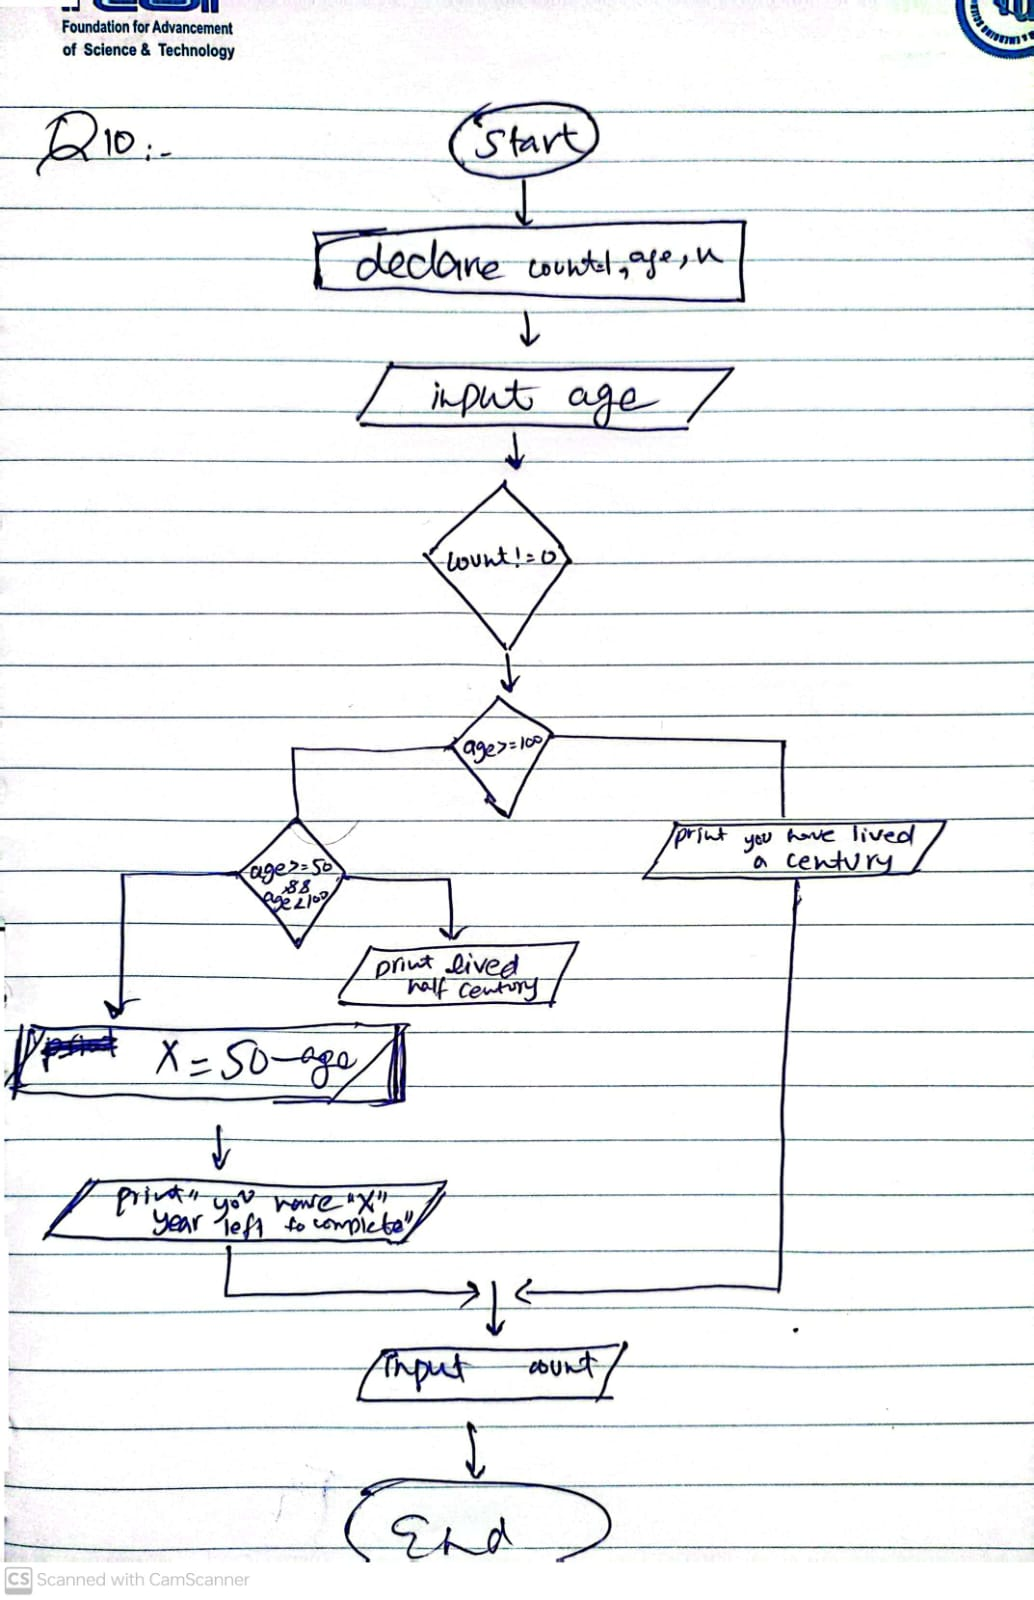 Foundation for Advancement
of Science & Technology
Q10:-
Start
declare count=1, age, n
input age
count!=0
age>=100
print you have lived
a century
age>=50
&&
age<100
print lived
half century
X=50-age
print" you have "X"
year left to complete"
input count
End
CS Scanned with CamScanner